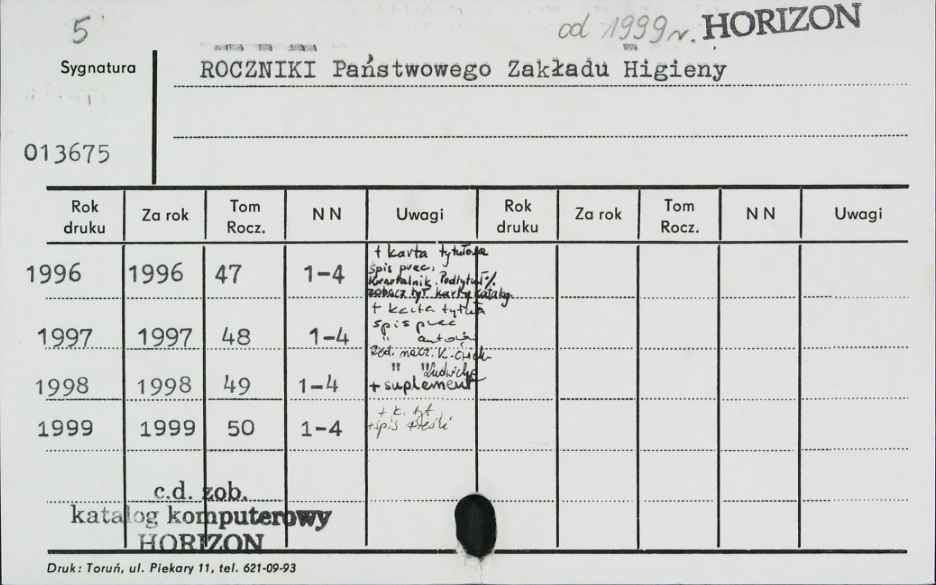 5
od 1999 r. HORIZON
Sygnatura
ROCZNIKI Państwowego Zakładu Higieny
013675
Rok druku Za rok Tom Rocz. N N Uwagi Rok druku Za rok Tom Rocz. N N Uwagi
1996 1996 47 1-4 + karta tytułowa
spis prac.
Kwartalnik. Podtytuł %.
zobacz tył karty katalog.
1997 1997 48 1-4 + karta
spis prac
"
Red. nacz. K.
"
1998 1998 49 1-4 + suplement
1999 1999 50 1-4 + k. tyt
+ spis treści
c.d. zob.
katalog komputerowy
HORIZON
Druk: Toruń, ul. Piekary 11, tel. 621-09-93